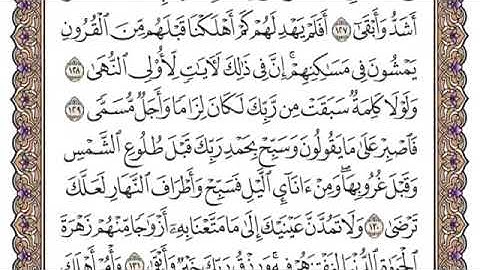 أَشَدُّ وَأَبْقَىٰٓ ١٢٧ أَفَلَمْ يَهْدِ لَهُمْ كَمْ أَهْلَكْنَا قَبْلَهُم مِّنَ ٱلْقُرُونِ
يَمْشُونَ فِى مَسَٰكِنِهِمْ ۗ إِنَّ فِى ذَٰلِكَ لَءَايَٰتٍ لِّأُو۟لِى ٱلنُّهَىٰ ١٢٨
وَلَوْلَا كَلِمَةٌ سَبَقَتْ مِن رَّبِّكَ لَكَانَ لِزَامًا وَأَجَلٌ مُّسَمًّى ١٢٩
فَٱصْبِرْ عَلَىٰ مَا يَقُولُونَ وَسَبِّحْ بِحَمْدِ رَبِّكَ قَبْلَ طُلُوعِ ٱلشَّمْسِ
وَقَبْلَ غُرُوبِهَا ۖ وَمِنْ ءَانَآئِ ٱلَّيْلِ فَسَبِّحْ وَأَطْرَافَ ٱلنَّهَارِ لَعَلَّكَ
تَرْضَىٰ ١٣٠ وَلَا تَمُدَّنَّ عَيْنَيْكَ إِلَىٰ مَا مَتَّعْنَا بِهِۦٓ أَزْوَٰجًا مِّنْهُمْ زَهْرَةَ
ٱلْحَيَوٰةِ ٱلدُّنْيَا لِنَفْتِنَهُمْ فِيهِ ۚ وَرِزْقُ رَبِّكَ خَيْرٌ وَأَبْقَىٰ ١٣١ وَأْمُرْ أَهْلَكَ